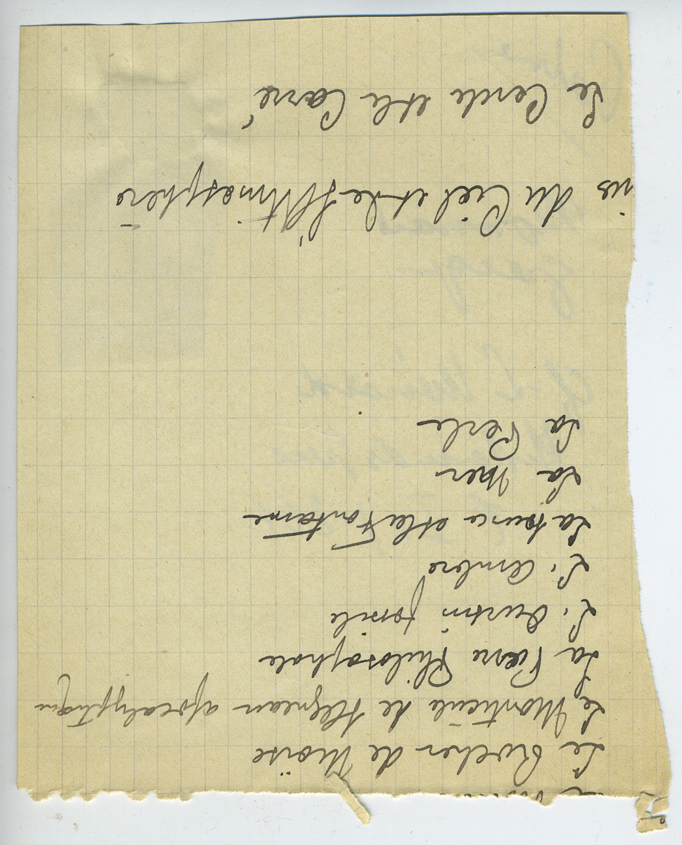 Le Rocher de Moïse
Le Monticule de l'Agneau apocalyptique
La Pierre Philosophale
L'Oursin fossile
L'Ambre
La Source et la Fontaine
La Mer
La Perle
du Ciel et de l'Atmosphère
Le Cercle et le Carré